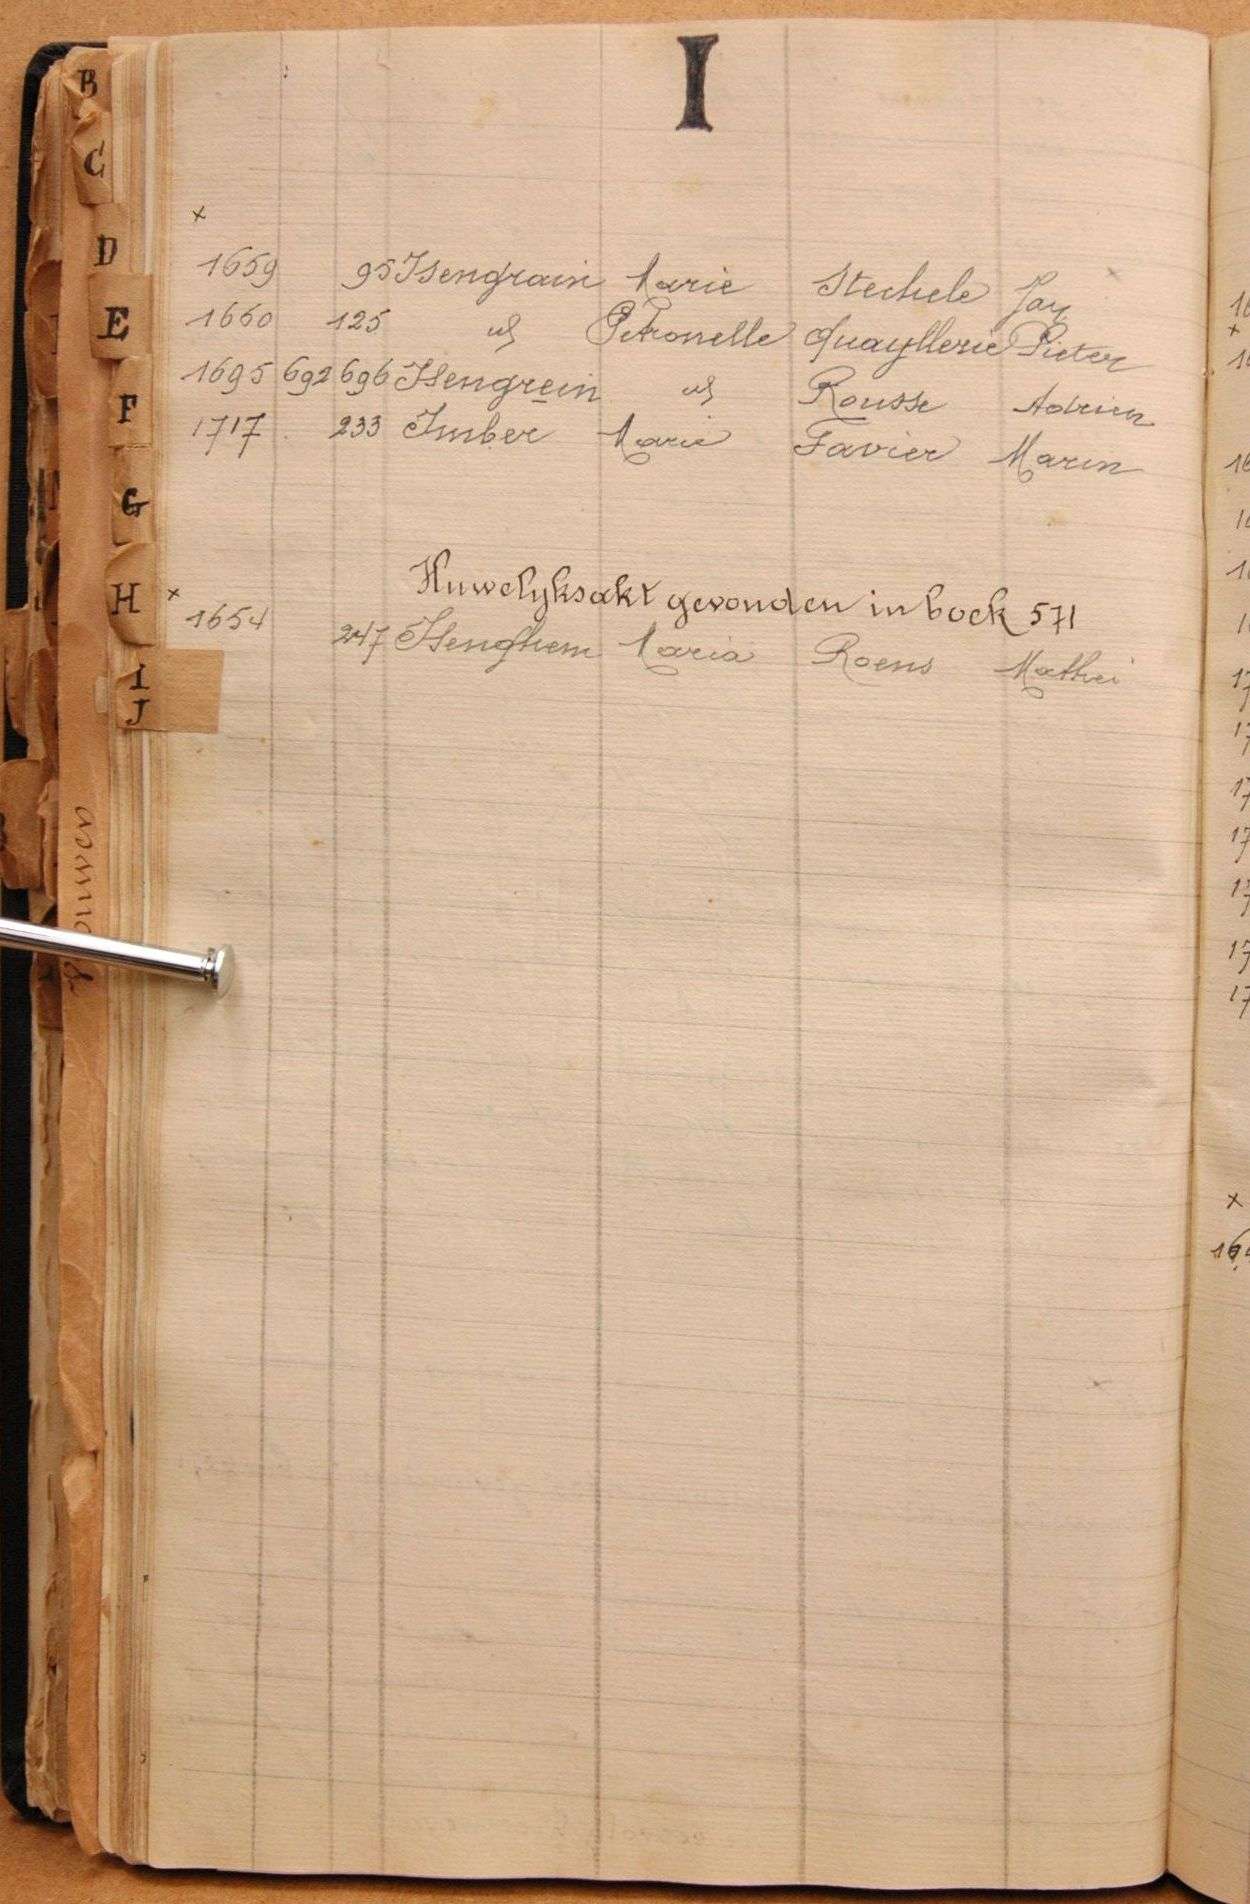 I
x
1659 95 Isengrain Marie Stechele Jan
1660 125 id Petronelle Quayllerie Pieter
1695 692 696 Isengrein id Rousse Adrien
1717 233 Imber Marie Favier Marin
Huwelyksakt gevonden in boek 571
x
1654 247 Isenghem Maria Roens Mathei
B
C
D
E
F
G
H
I
J